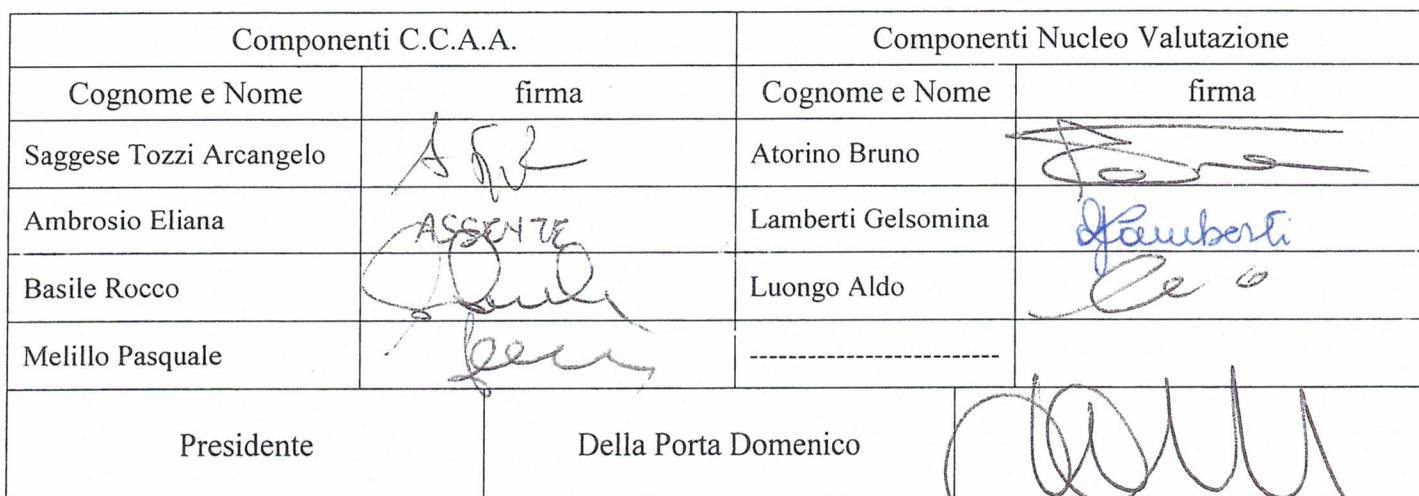 Componenti C.C.A.A. Componenti Nucleo Valutazione
Cognome e Nome firma Cognome e Nome firma
Saggese Tozzi Arcangelo Atorino Bruno
Ambrosio Eliana ASSENTE Lamberti Gelsomina Lamberti
Basile Rocco Luongo Aldo
Melillo Pasquale -------------------------
Presidente Della Porta Domenico